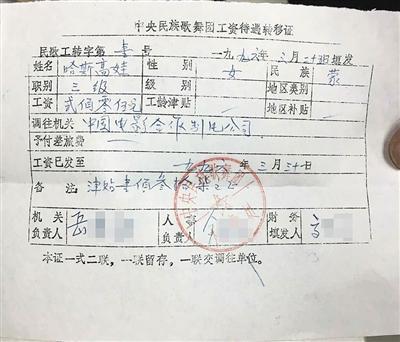 中央民族歌舞团工资待遇转移证
民歌工转字第 号 一九九 年三月二十 日填发
姓名 哈斯高娃 性别 女 民族 蒙
职别 三级 级别 地区类别
工资 贰佰零 元 工龄津贴 地区补贴
调往机关 中国电影合 制片公司
予付差旅费
工资已发至 一九九 年三月三十 日
备注: 津贴壹佰叁拾柒元
机关负责人 岳 人事负责人 财务填发人 高
本证一式二联,一联留存,一联交调往单位。